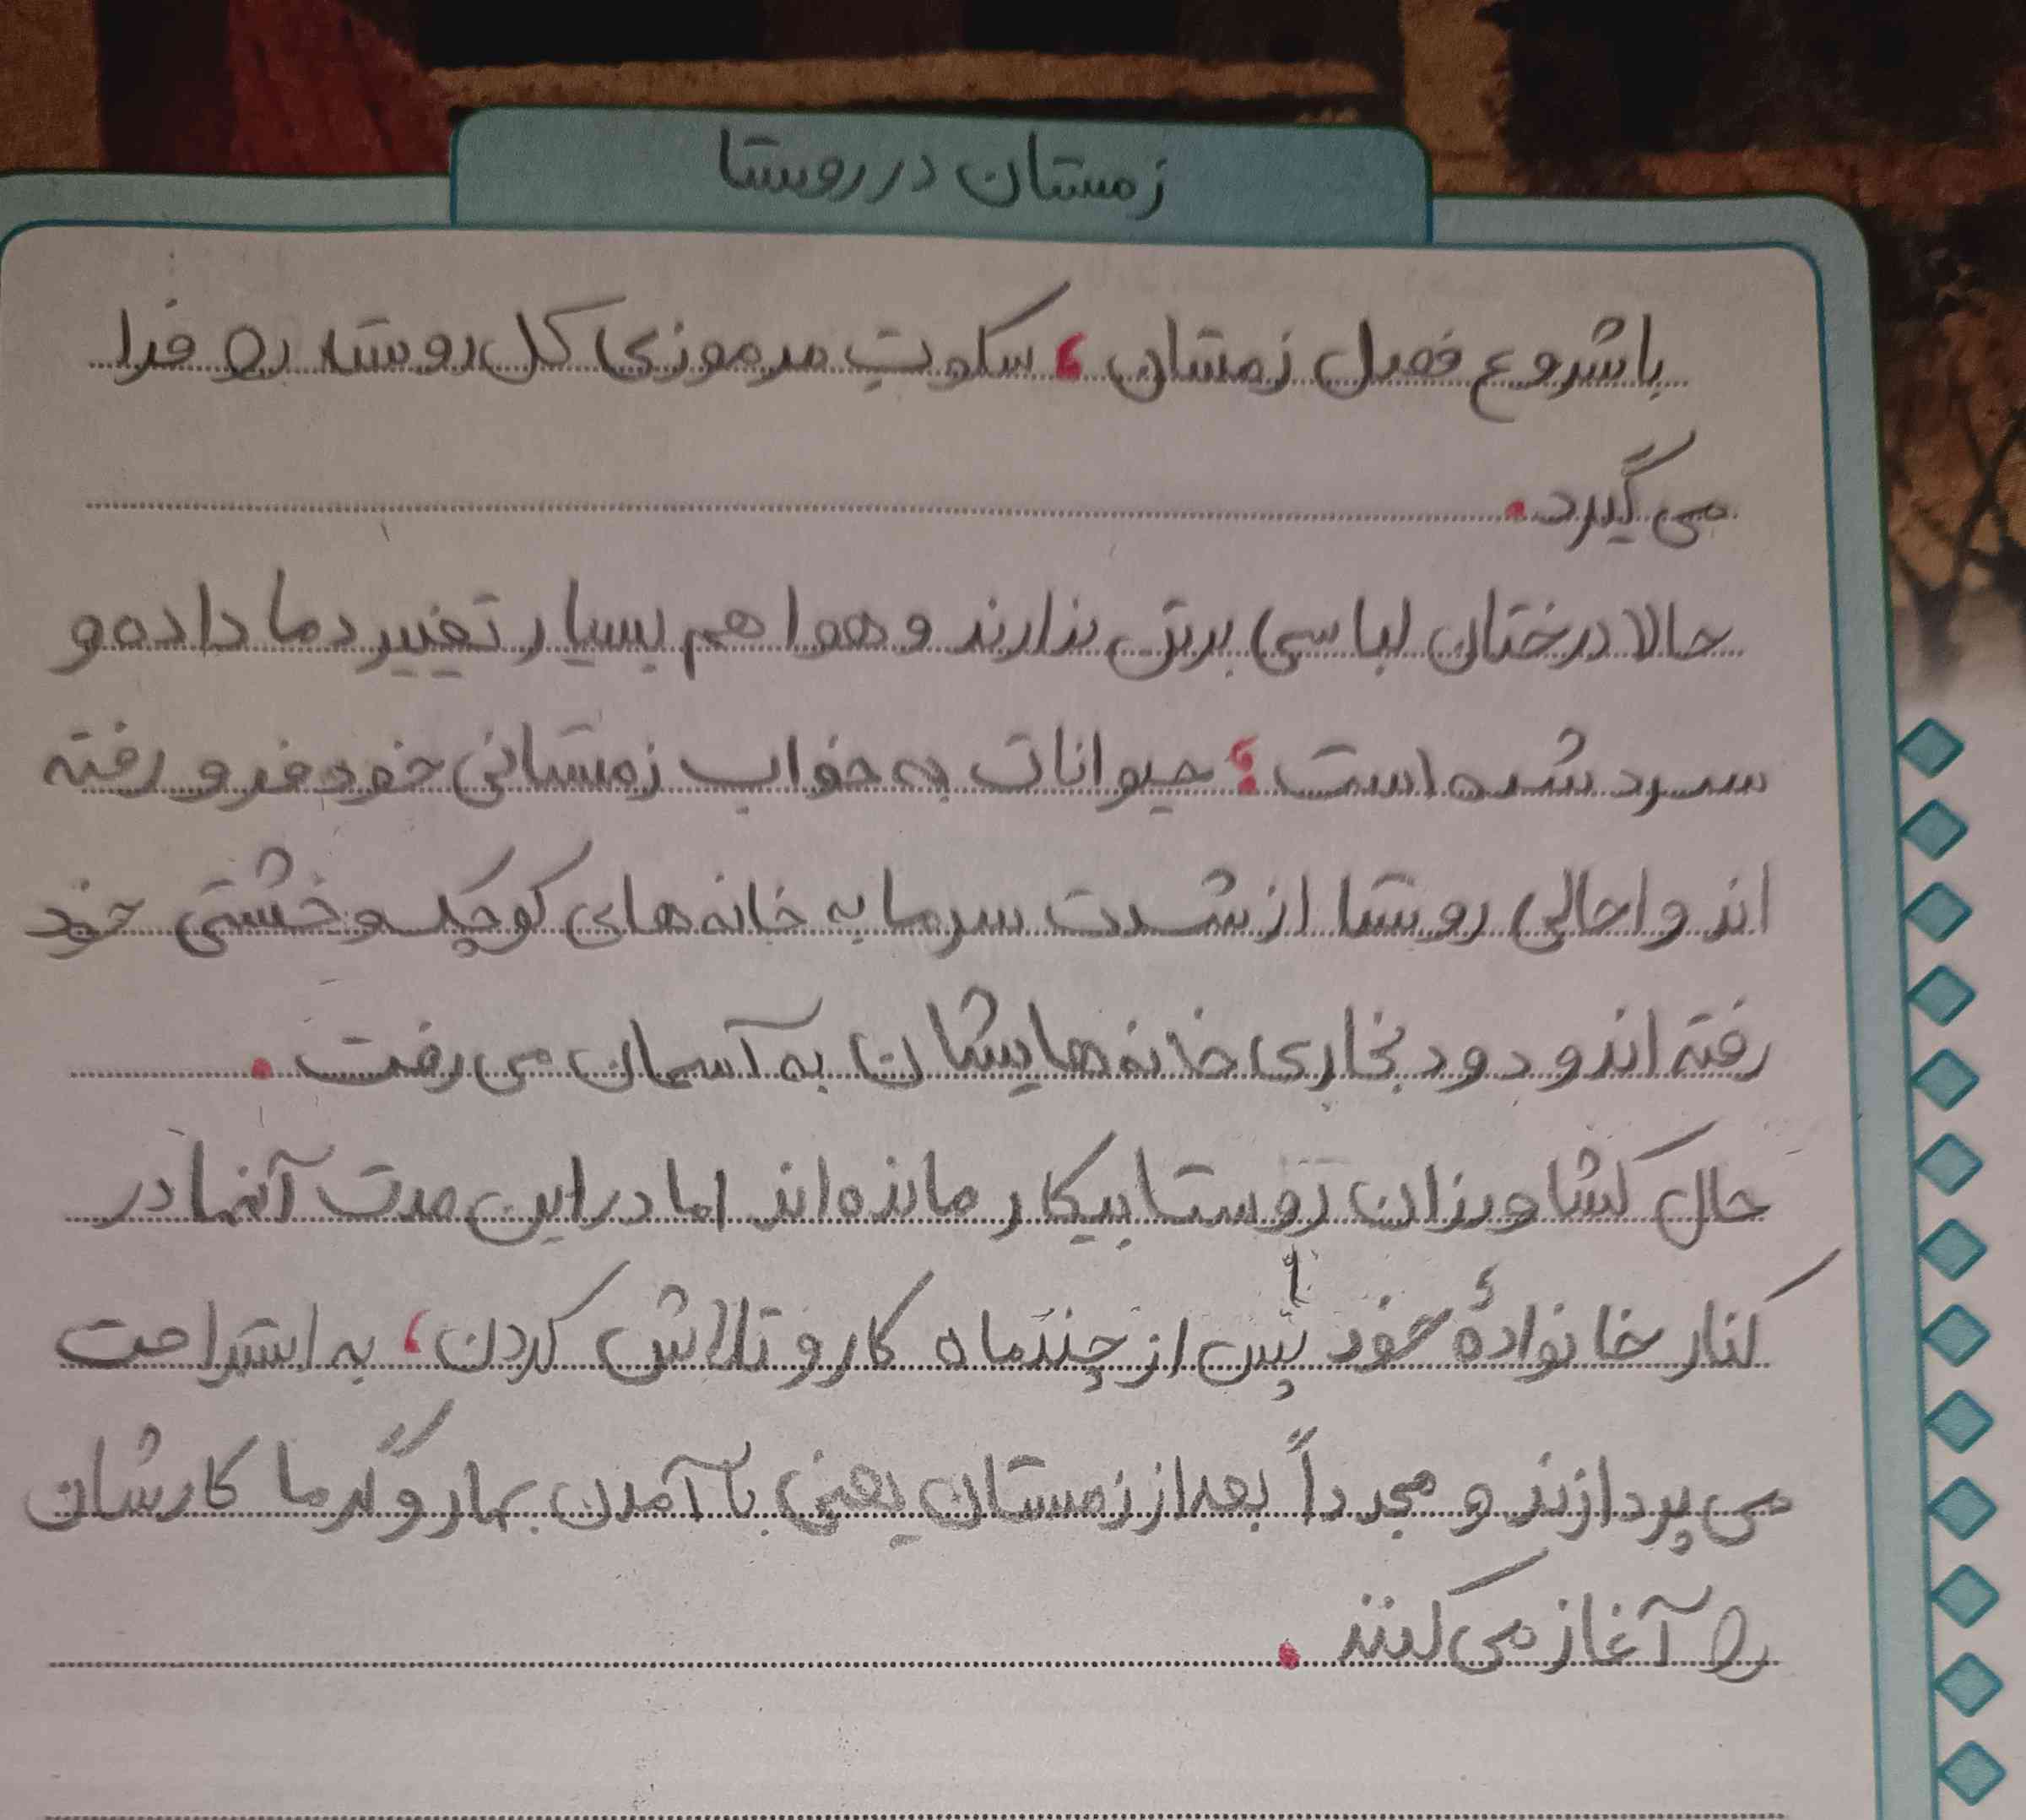 زمستان در روستا
با شروع فصل زمستان، سکوتِ مرموزی کل روستا را فرا
می گیرد.
حالا درختان لباسی بر تن ندارند و هوا هم بسیار تغییر دما داده و
سرد شده است؛ حیوانات به خواب زمستانی خود فرو رفته
اند و احالی روستا از شدت سرما به خانه های کوچک و خشتی خود
رفته اند و دود بخاری خانه هایشان به آسمان می رفت.
حال کشاورزان روستا بیکار مانده اند اما در این مدت آنها در
کنار خانوادهٔ خود پس از چند ماه کار و تلاش کردن، به استراحت
می پردازند و مجدداً بعد از زمستان یعنی با آمدن بهار و گرما کارشان
را آغاز می کنند.